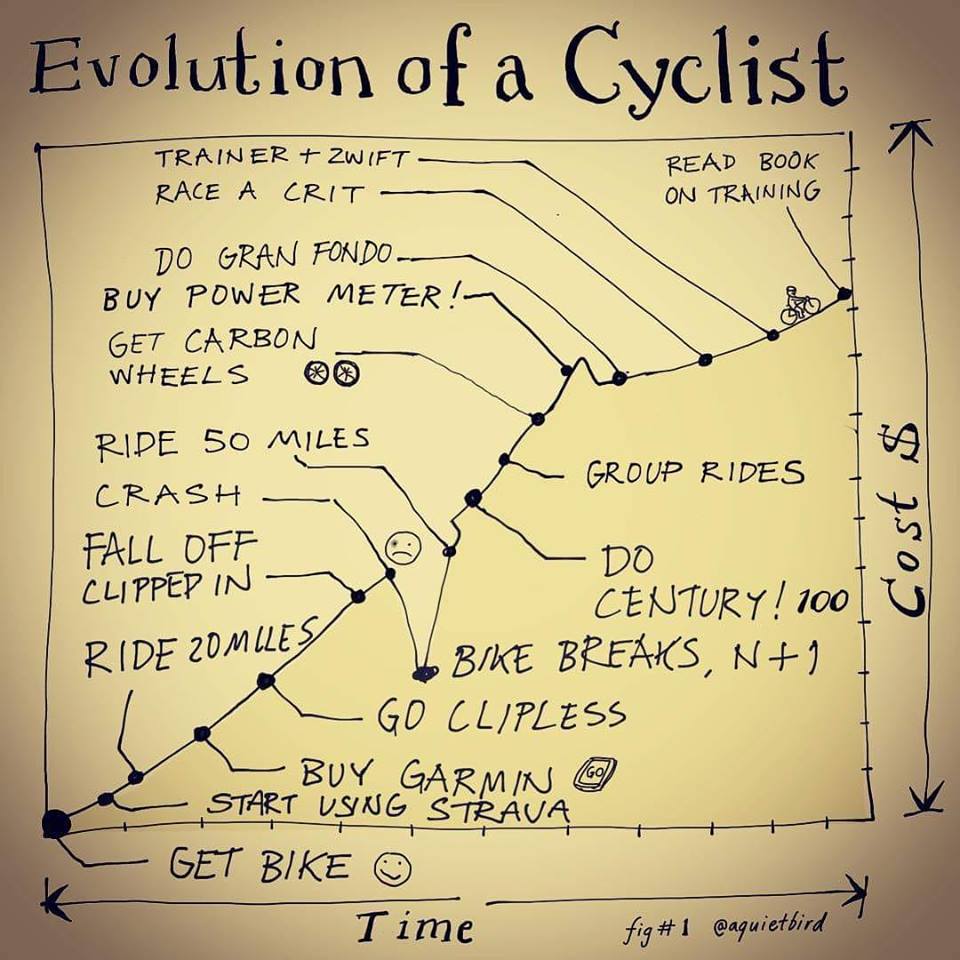 Evolution of a Cyclist
TRAINER + ZWIFT
RACE A CRIT
READ BOOK
ON TRAINING
DO GRAN FONDO
BUY POWER METER!
GET CARBON
WHEELS
RIDE 50 MILES
CRASH
GROUP RIDES
FALL OFF
CLIPPED IN
DO
CENTURY! 100
RIDE 20 MILES
BIKE BREAKS, N+1
GO CLIPLESS
BUY GARMIN GO
START USING STRAVA
GET BIKE
Cost $
Time
fig #1 @aquietbird